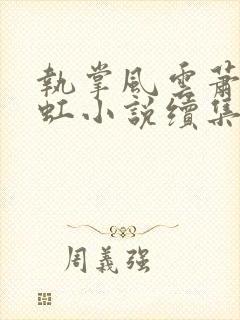 執掌風雲蕭
虹小說續集
周義強